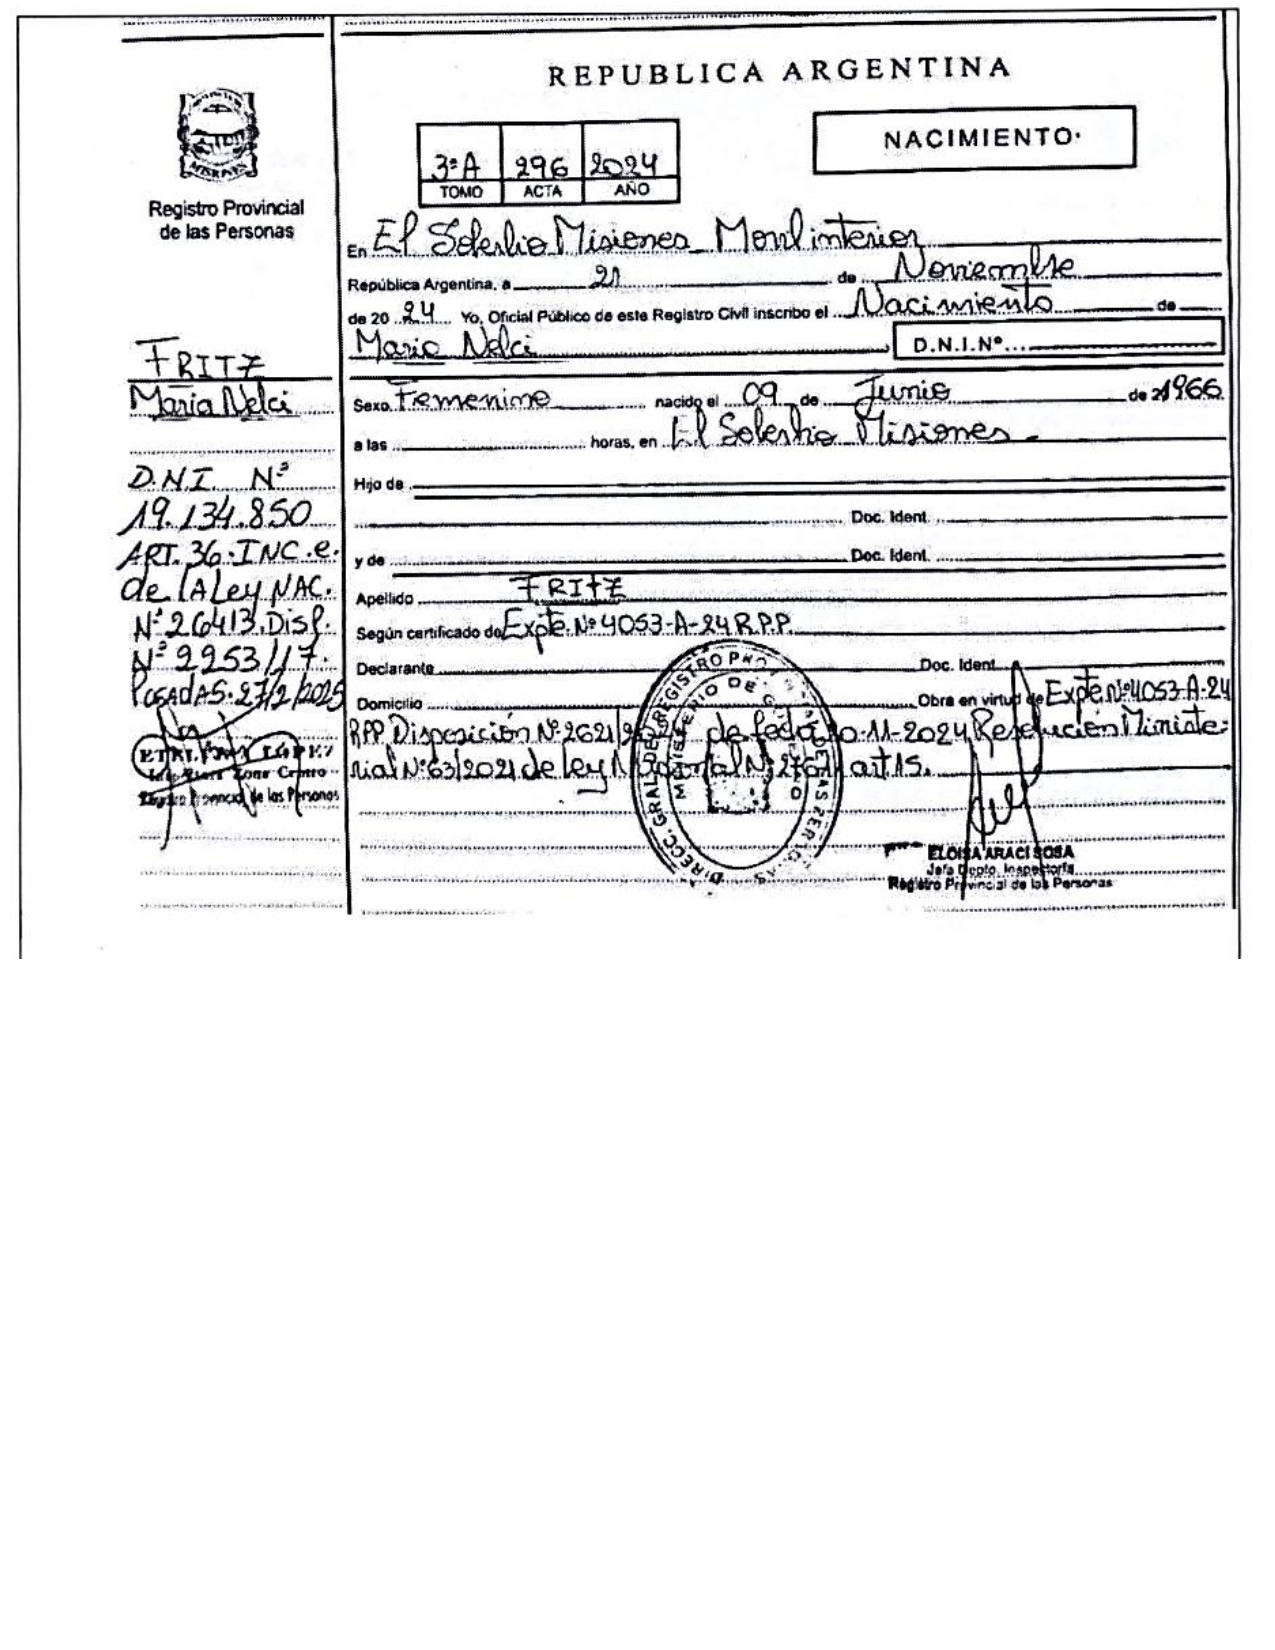 REPUBLICA ARGENTINA
NACIMIENTO
3ª A 296 2024
TOMO ACTA AÑO
MISIONES
Registro Provincial
de las Personas
En El Soberbio Misiones Movil interior
República Argentina, a 21 de Noviembre
de 20 24 Yo, Oficial Público de este Registro Civil inscribo el Nacimiento de
Maria Nelci D.N.I.Nº
FRITZ
Maria Nelci
Sexo Femenino nacido el 09 de Junio de 1966
a las horas, en El Soberbio Misiones -
Hijo de
Doc. Ident.
y de Doc. Ident.
Apellido FRITZ
Según certificado de Expte. Nº 4053-A-24 R.P.P.
Declarante Doc. Ident.
Domicilio Obra en virtud de Expte Nº 4053-A-24
RPP Disposición Nº 2621/ de fecha 11-2024, Resolución Ministe-
rial Nº 63/2021 de ley Nacional Nº art 15.
D.N.I. Nº
19.134.850
ART. 36. INC. e.
de LA Ley NAC.
Nº 26413. Disp.
Nº 2253/17.
POSADAS. 27/2/2025
LOPEZ
Zona Centro
Registro Provincial de las Personas
DIRECC. GRAL. DE REGISTRO
MINISTERIO DE
ELOISA ARACI SOSA
Jefa Depto. Inspectoría
Registro Provincial de las Personas